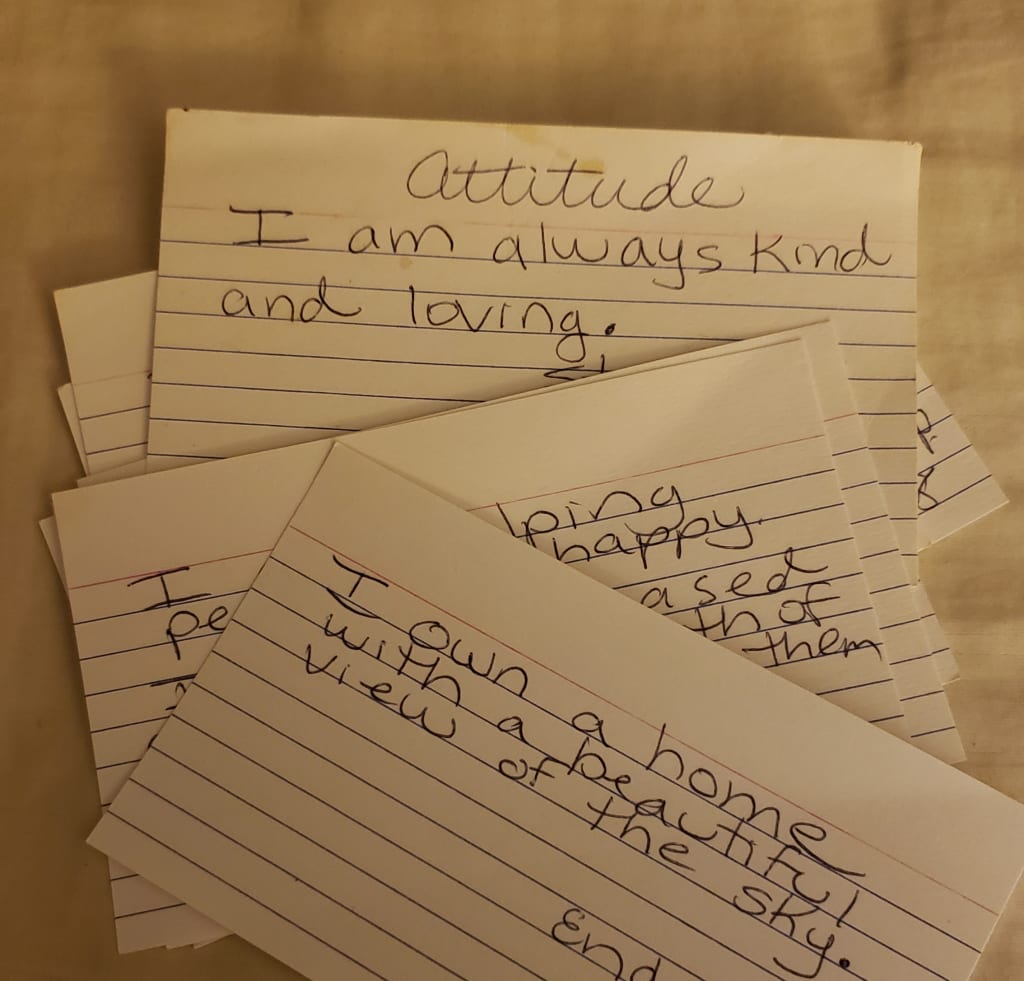 Attitude
I am always kind
and loving.
lping
happy.
ased
th of
them
I
pe
I own a home
with a beautiful
view of the sky.
End